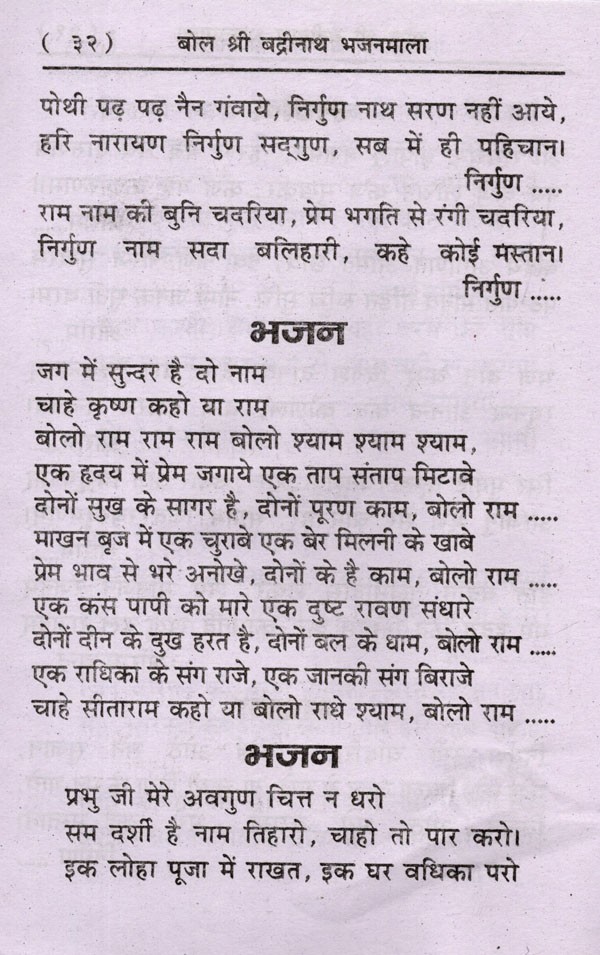 ( ३२ ) बोल श्री बद्रीनाथ भजनमाला
पोथी पढ़ पढ़ नैन गंवाये, निर्गुण नाथ सरण नहीं आये,
हरि नारायण निर्गुण सद्गुण, सब में ही पहिचान।
निर्गुण .....
राम नाम की बुनि चदरिया, प्रेम भगति से रंगी चदरिया,
निर्गुण नाम सदा बलिहारी, कहे कोई मस्तान।
निर्गुण .....
भजन
जग में सुन्दर है दो नाम
चाहे कृष्ण कहो या राम
बोलो राम राम राम बोलो श्याम श्याम श्याम,
एक हृदय में प्रेम जगाये एक ताप संताप मिटावे
दोनों सुख के सागर है, दोनों पूरण काम, बोलो राम .....
माखन बृज में एक चुराबे एक बेर मिलनी के खाबे
प्रेम भाव से भरे अनोखे, दोनों के है काम, बोलो राम .....
एक कंस पापी को मारे एक दुष्ट रावण संधारे
दोनों दीन के दुख हरत है, दोनों बल के धाम, बोलो राम .....
एक राधिका के संग राजे, एक जानकी संग बिराजे
चाहे सीताराम कहो या बोलो राधे श्याम, बोलो राम .....
भजन
प्रभु जी मेरे अवगुण चित्त न धरो
सम दर्शी है नाम तिहारो, चाहो तो पार करो।
इक लोहा पूजा में राखत, इक घर वधिका परो